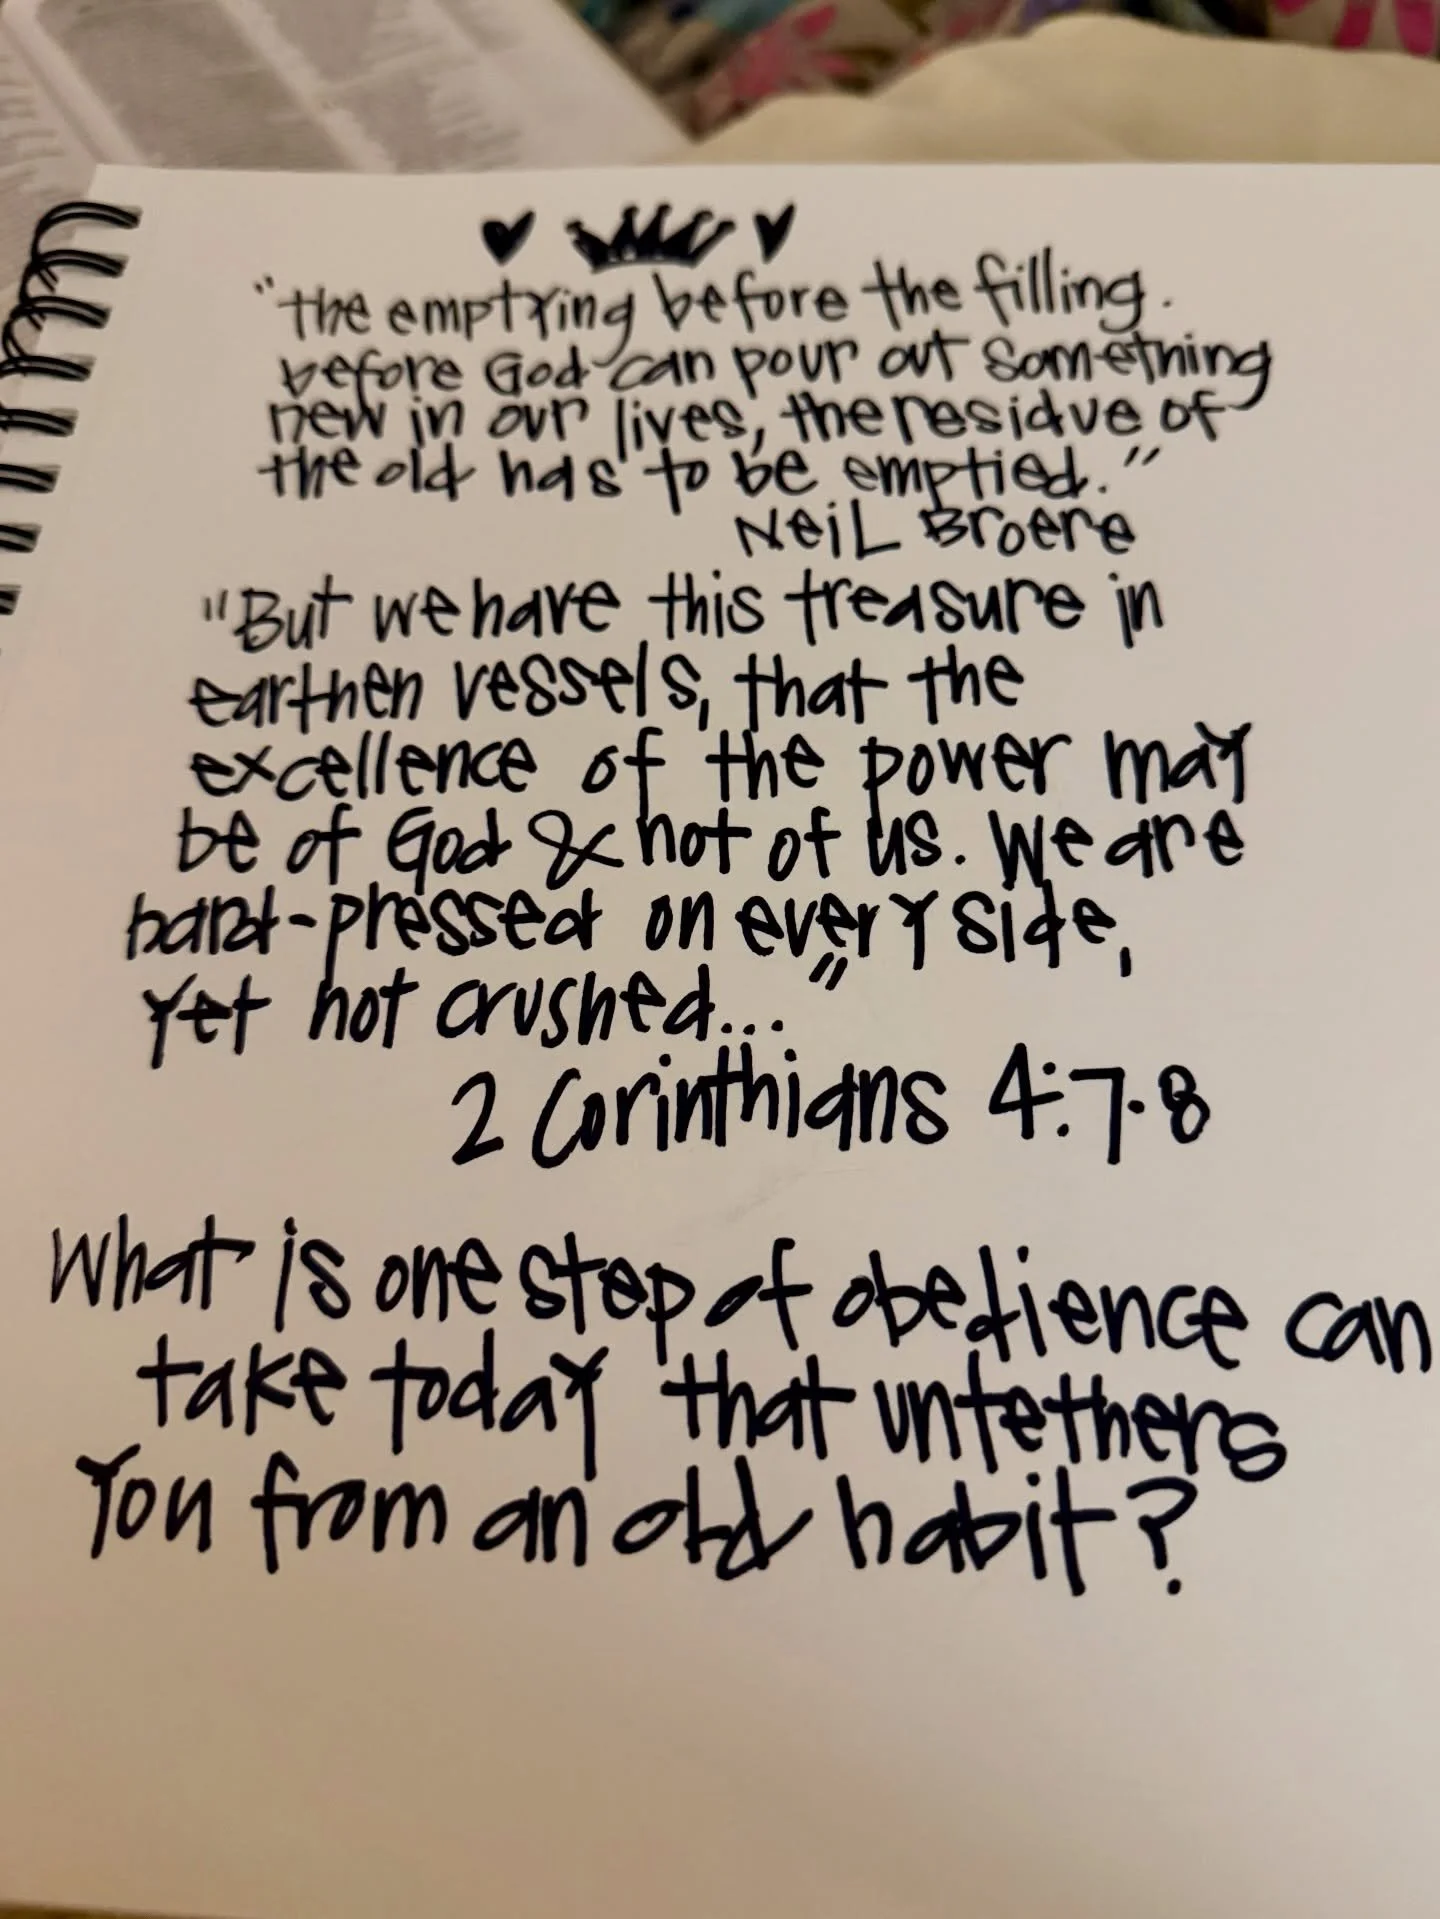 "the emptying before the filling.
before God can pour out something
new in our lives, the residue of
the old has to be emptied."
Neil Broere
"But we have this treasure in
earthen vessels, that the
excellence of the power may
be of God & not of us. We are
hard-pressed on every side,
yet not crushed..."
2 Corinthians 4:7-8
What is one step of obedience can
take today that untethers
You from an old habit?